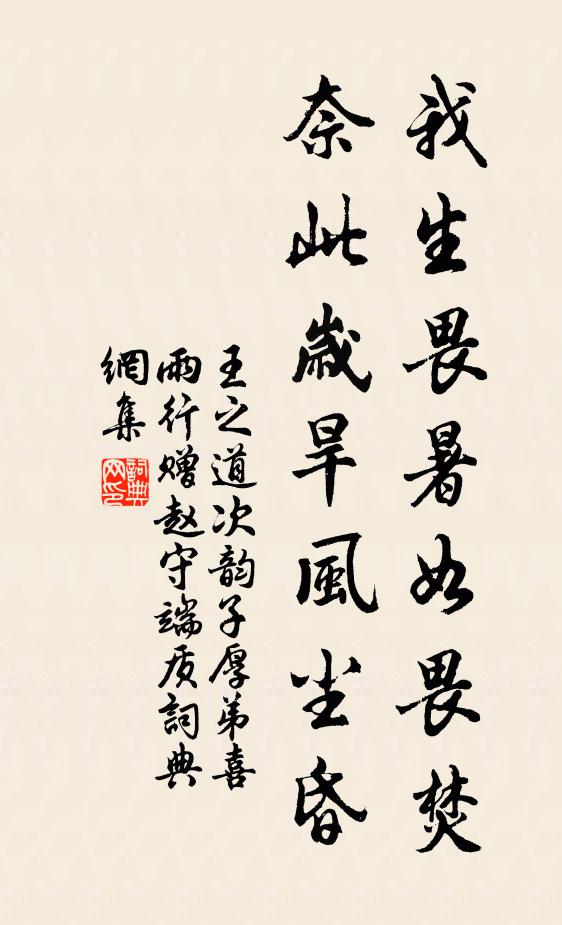 我生畏暑如畏焚
奈此歲旱風尘昏
王之道次韵子厚弟喜
雨行赠赵守端质詞典
網集
詞典
网印